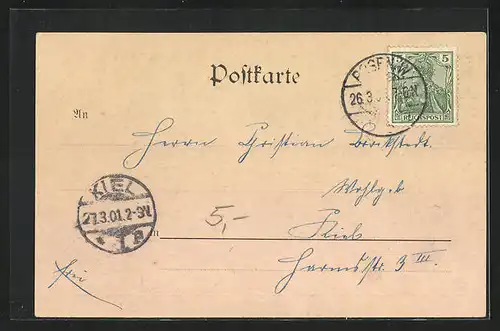 Postkarte
POSEN W
26.3.
5
REICHSPOST
An
Herrn Christian
Wohlgeb
KIEL
27.3.01.2-3N.
1 a
5,-
in Kiel
Harmsstr. 3 III.
frei